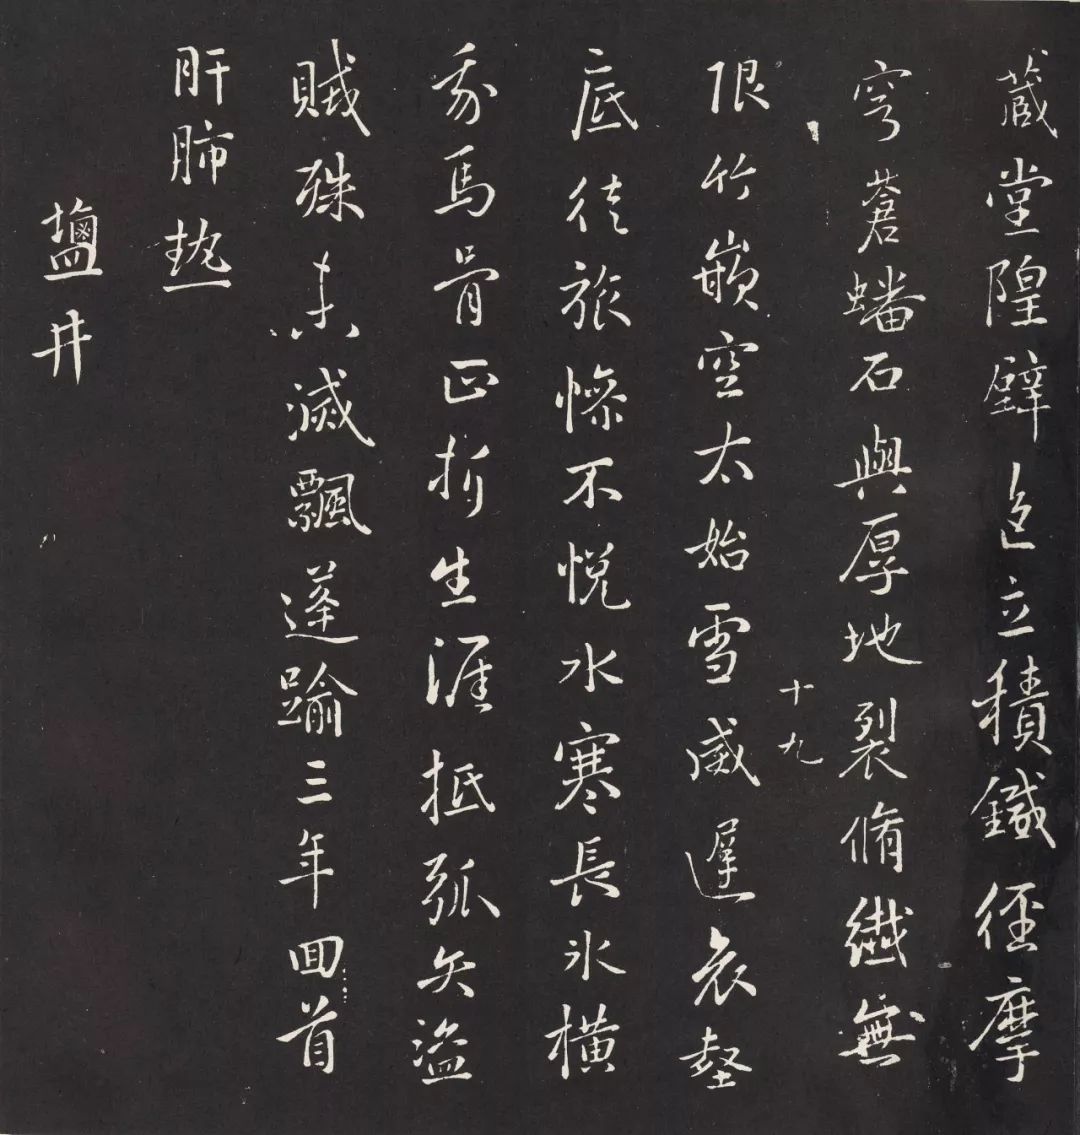 藏堂隍壁色立積鐵徑摩
穹蒼蟠石與厚地裂脩纖無
十九
限竹嵌空太始雪威遲哀壑
底徒旅慘不悅水寒長冰橫
我馬骨正折生涯抵弧矢盜
賊殊未滅飄蓬踰三年回首
肝肺熱
鹽井